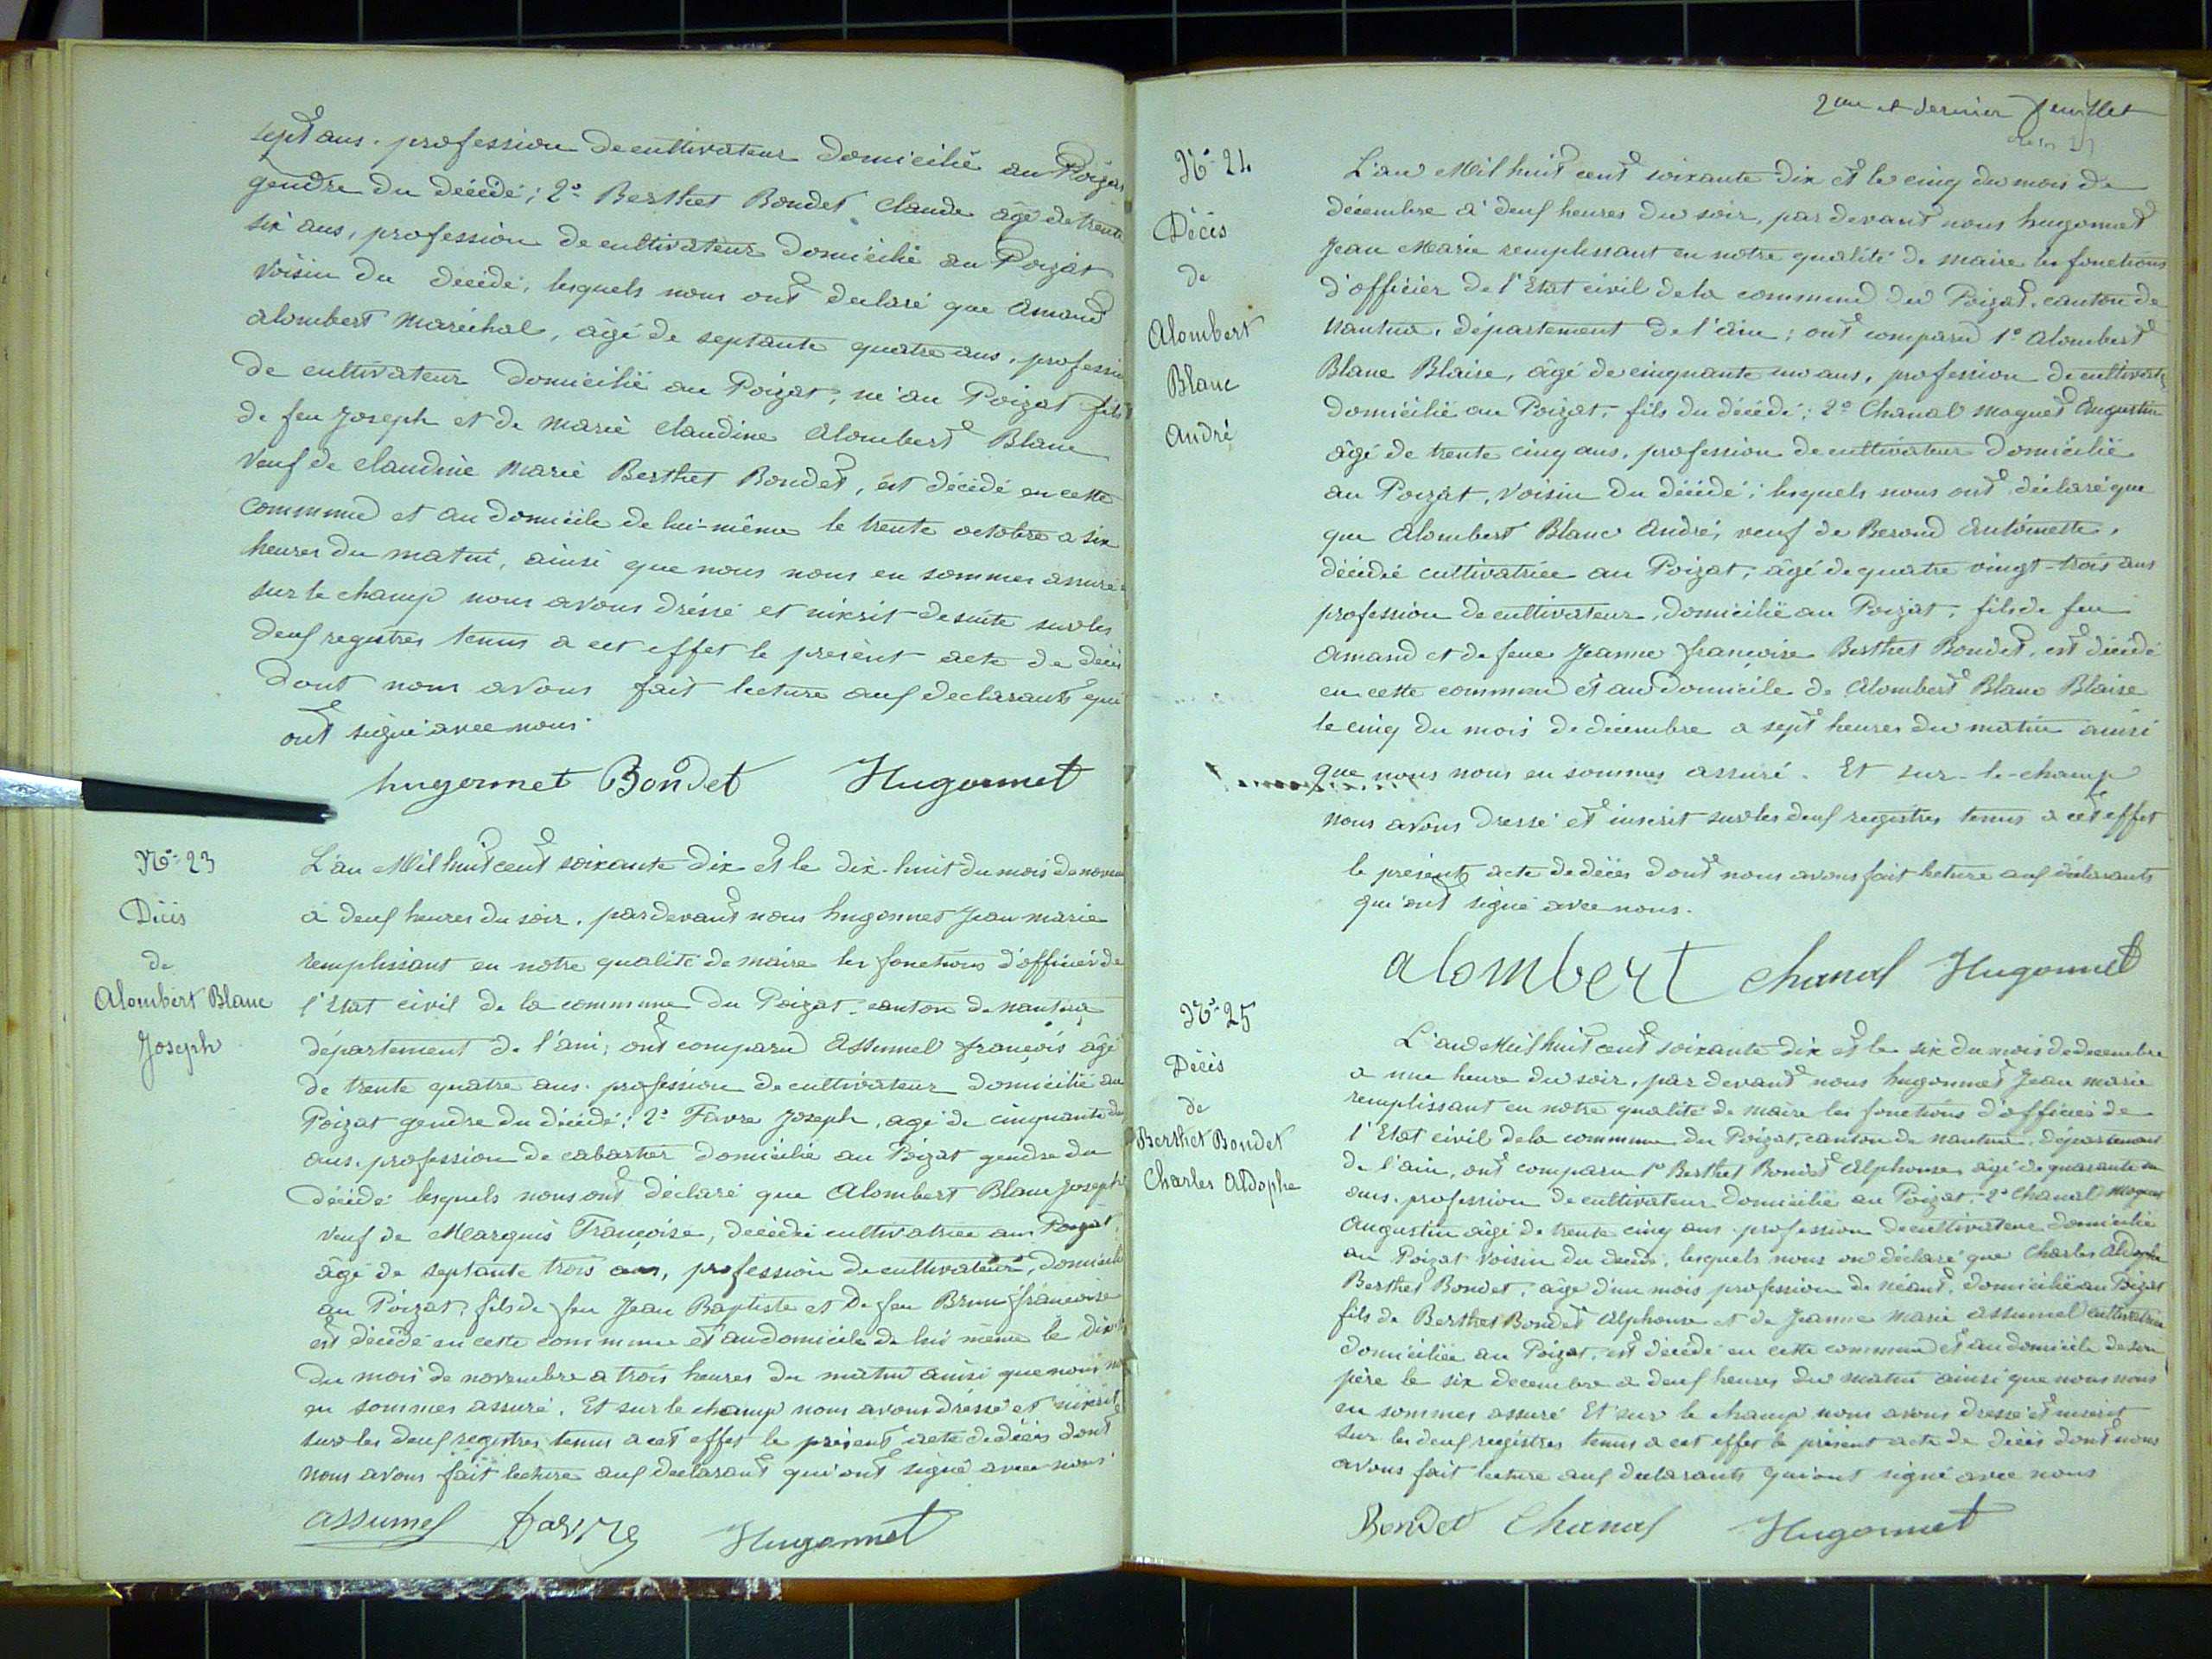 sept ans. profession de cultivateur domicilié au Poizat
gendre du décédé; 2° Berthet Bondet Claude âgé de trente
six ans, profession de cultivateur domicilié au Poizat
voisin du décédé, lesquels nous ont declaré que Amand
alombert Maréchal, âgé de septante quatre ans, profession
de cultivateur domicilié au Poizat, né au Poizat fils
de feu Joseph et de Marie Claudine Alombert Blanc
Veuf de Claudine Marie Berthet Bondet, est décédé en cette
commune et au domicile de lui-même le trente octobre a six
heures du matin, ainsi que nous nous en sommes assuré
sur le champ nous avons dréssé et inscrit de suite sur les
deux registres tenus a cet effet le présent acte de décès
dont nous avons fait lecture aux declarants qui
ont signé avec nous.
hugonnet Bondet Hugonnet
N°- 23
Décès
de
Alombert Blanc
Joseph
L'an Mil huit cent soixante dix et le dix-huit du mois de
à deux heures du soir. par devant nous hugonnet Jean marie
remplissant en notre qualité de maire les fonctions d'officier de
l'Etat civil de la commune du Poizat. canton de nantua
département de l'ain; ont comparu Assumel françois âgé
de trente quatre ans. profession de cultivateur domicilié au
Poizat gendre du décédé; 2° Favre Joseph, agé de cinquante
ans. profession de cabartier domicilié au Poizat gendre du
décédé lesquels nous ont déclaré que Alombert Blanc Joseph
veuf de Marquis Françoise, décédée cultivatrice au Poizat
âgé de septante trois ans, profession de cultivateur, domicilié
au Poizat, fils de feu Jean Baptiste et de feu Brun françoise
est décédé en cette commune et au domicile de lui même le
du mois de novembre a trois heures du matin ainsi que nous
en sommes assuré. Et sur le champ nous avons dréssé et inscrit
sur les deux registres tenus a cet effet le présent acte de décès dont
nous avons fait lecture aux declarant qui ont signé avec nous
assumel favre Hugonnet
2me et dernier feuillet
N°- 24
Décès
de
Alombert
Blanc
André
L'an Mil huit cent soixante dix et le cinq du mois de
décembre à deux heures du soir, par devant nous hugonnet
Jean Marie remplissant en notre qualité de maire les fonctions
d'officier de l'Etat civil de la commune du Poizat. canton de
nantua, département de l'ain; ont comparu 1° Alombert
Blanc Blaise, âgé de cinquante un ans, profession de
domicilié au Poizat, fils du décédé; 2° Chanal Moguet Augustin
âgé de trente cinq ans, profession de cultivateur domicilié
au Poizat, voisin du décédé; lesquels nous ont déclaré que
que Alombert Blanc André, veuf de Berond Antoinette,
décédée cultivatrice au Poizat, âgé de quatre vingt-trois ans
profession de cultivateur, domicilié au Poizat, fils de feu
Amand et de feue Jeanne françoise Berthet Bondet, est décédé
en cette commune et au domicile de Alombert Blanc Blaise
le cinq du mois de décembre a sept heures du matin ainsi
que nous nous en sommes assuré. Et sur-le-champ
nous avons dressé et inscrit sur les deux registres tenus a cet effet
le présent acte de décès dont nous avons fait lecture aux déclarants
qui ont signé avec nous.
alombert chanal Hugonnet
N°- 25
Décès
de
Berthet Bondet
Charles Aldophe
L'an Mil huit cent soixante dix et le six du mois de decembre
a une heure du soir, par devant nous hugonnet Jean marie
remplissant en notre qualité de maire les fonctions d'officier de
l'Etat civil de la commune du Poizat, canton de nantua, département
de l'ain, ont comparu 1° Berthet Bondet Alphonse, âgé de quarante un
ans. profession de cultivateur domicilié au Poizat. 2° Chanal Moguet
Augustin âgé de trente cinq ans. profession de cultivateur domicilié
au Poizat voisin du décédé, lesquels nous on déclaré que Charles Aldophe
Berthet Bondet, âgé d'un mois profession de néant, domicilié au Poizat
fils de Berthet Bondet Alphonse et de Jeanne Marie Assumel cultivatrice
domiciliée au Poizat, est décédé en cette commune et au domicile de son
père le six decembre a deux heures du matin ainsi que nous nous
en sommes assuré Et sur le champ nous avons dressé et inscrit
sur les deux registres tenus a cet effet le présent acte de décès dont nous
avons fait lecture aux declarants qui ont signé avec nous
Bondet Chanal Hugonnet